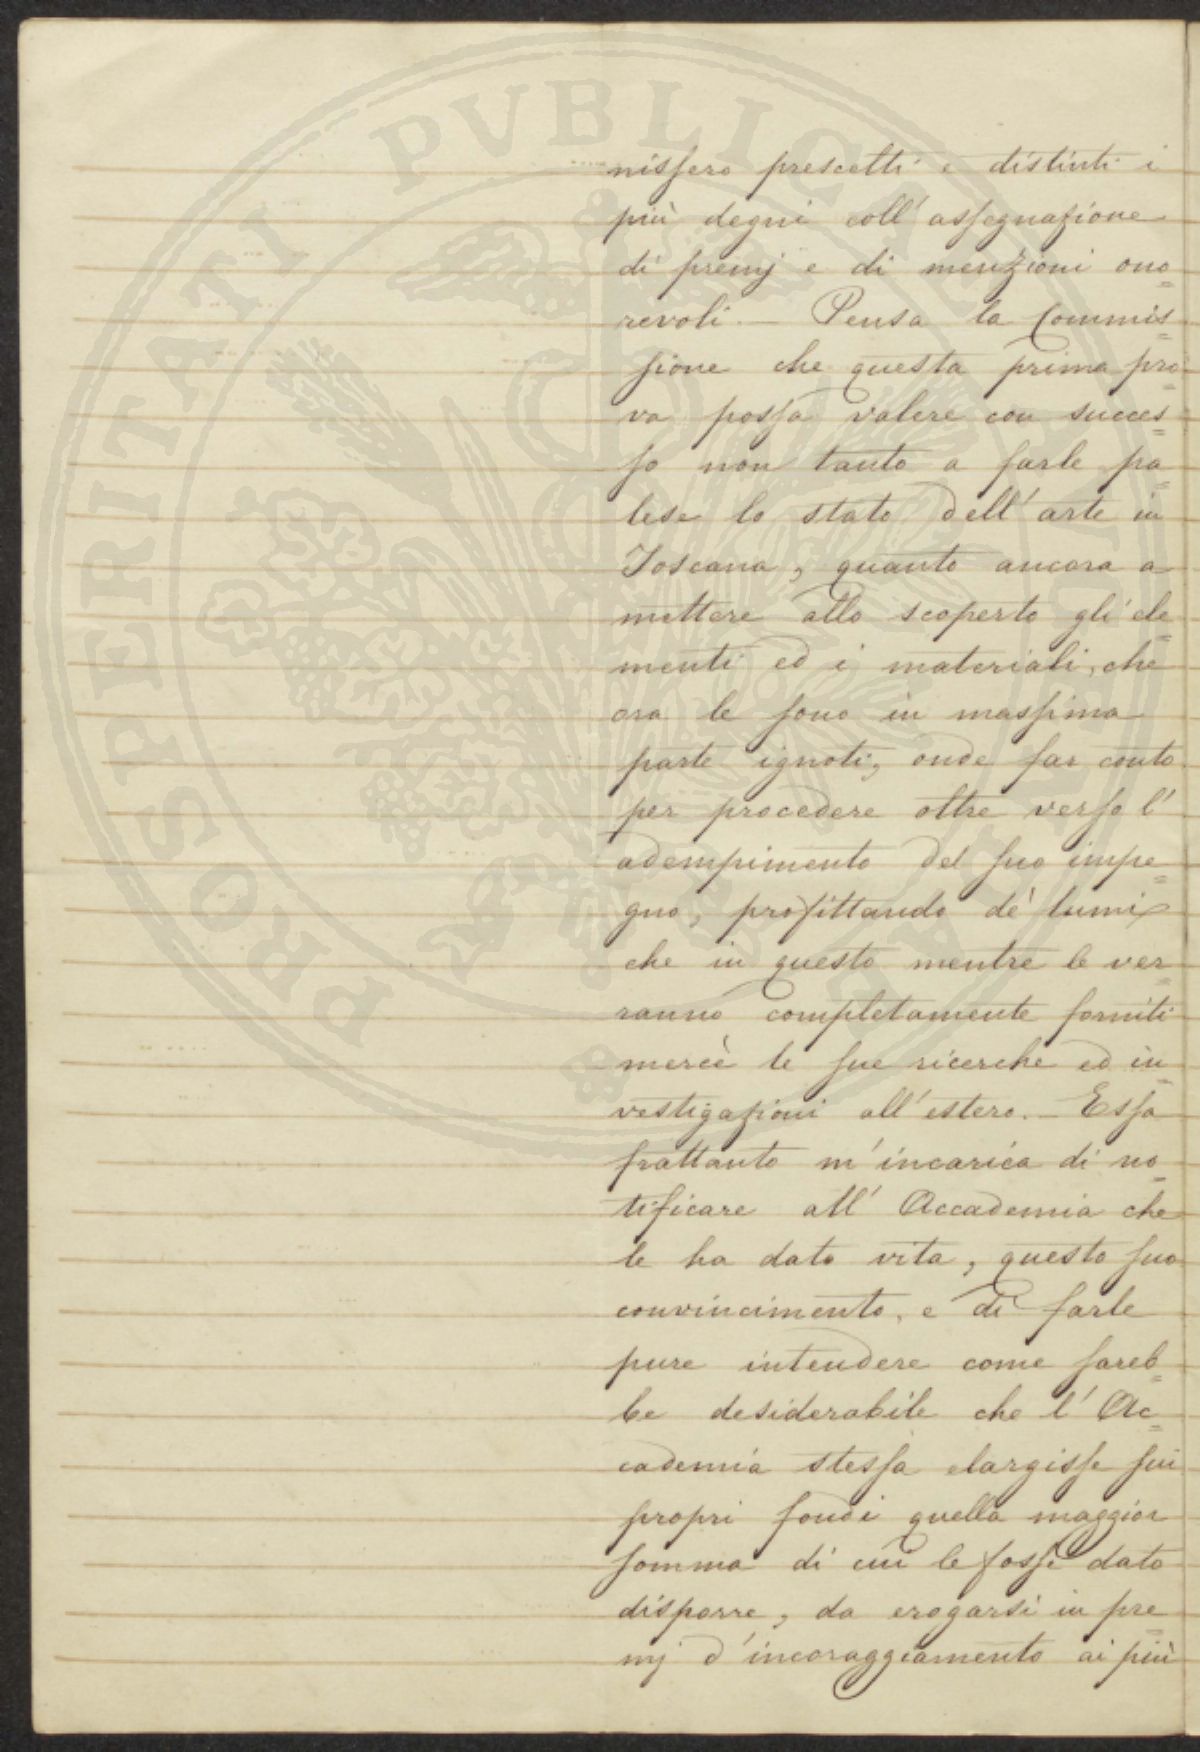 PROSPERITATI PVBLICAE
nissero prescelti e distinti i
più degni coll' assegnazione
di premj e di menzioni ono=
revoli. — Pensa la Commis=
sione che questa prima pro=
va possa valere con succes=
so non tanto a farle pa=
lese lo stato dell' arte in
Toscana, quanto ancora a
mettere allo scoperto gli ele=
menti ed i materiali, che
ora le sono in massima
parte ignoti, onde far conto
per procedere oltre verso l'
adempimento del suo impe=
gno, profittando de' lumi
che in questo mentre le ver=
ranno completamente forniti
mercè le sue ricerche ed in=
vestigazioni all' estero. — Essa
frattanto m' incarica di no=
tificare all' Accademia che
le ha dato vita, questo suo
convincimento, e di farle
pure intendere come sareb=
be desiderabile che l' Ac=
cademia stessa elargisse sui
propri fondi quella maggior
somma di cui le fosse dato
disporre, da erogarsi in pre=
mj d' incoraggiamento ai più